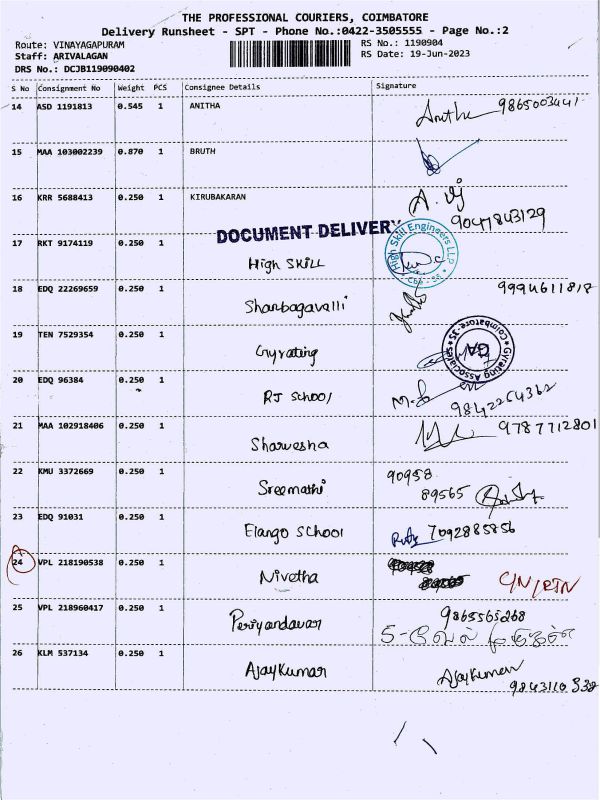 THE PROFESSIONAL COURIERS, COIMBATORE
Delivery Runsheet - SPT - Phone No.:0422-3505555 - Page No.:2
Route: VINAYAGAPURAM RS No.: 1190904
Staff: ARIVALAGAN RS Date: 19-Jun-2023
DRS No.: DCJB119090402
S No Consignment No Weight PCS Consignee Details Signature
14 ASD 1191813 0.545 1 ANITHA Anitha 9865003441
15 MAA 103002239 0.870 1 BRUTH
16 KRR 5688413 0.250 1 KIRUBAKARAN 9047843129
DOCUMENT DELIVERY
17 RKT 9174119 0.250 1 High SKill High Skill Engineers LLP
18 EDQ 22269659 0.250 1 Shanbagavalli 9994611818
19 TEN 7529354 0.250 1 Gyrating Coimbatore-35
20 EDQ 96384 0.250 1 RJ School 9842264362
21 MAA 102918406 0.250 1 Sharvesha 9787712801
22 KMU 3372669 0.250 1 Sreemathi 90958
89565
23 EDQ 91031 0.250 1 Elango School 7092885856
24 VPL 218190538 0.250 1 Nivetha
25 VPL 218960417 0.250 1 Periyandavar 9865565268
26 KLM 537134 0.250 1 AjayKumar Ajaykumar